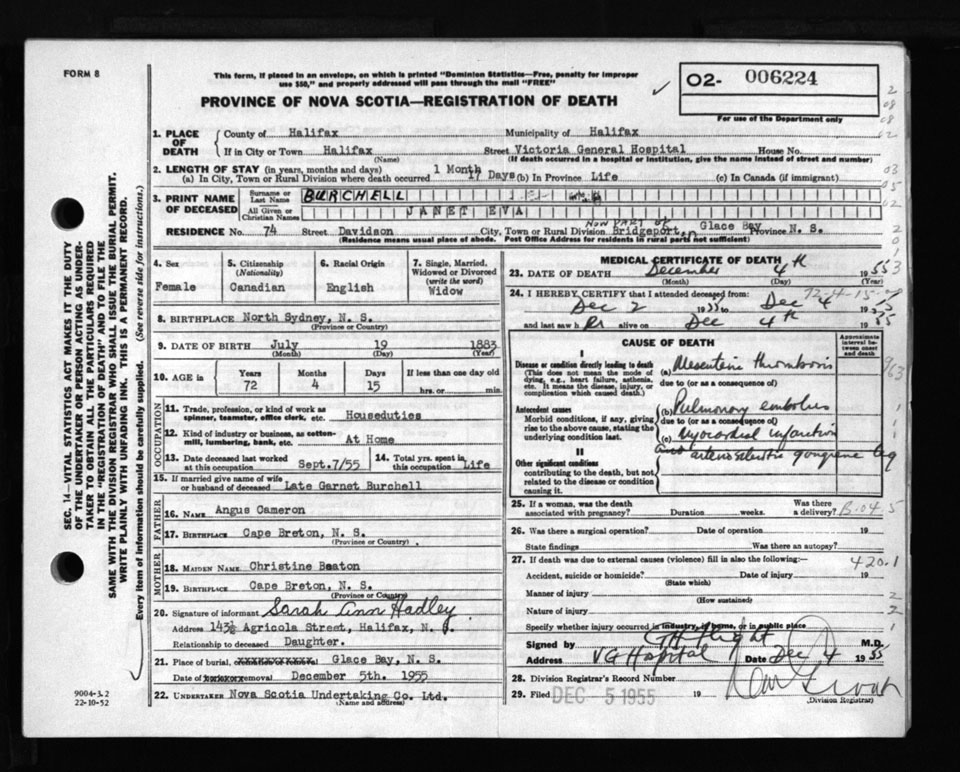 FORM 8
This form, if placed in an envelope, on which is printed "Dominion Statistics—Free, penalty for improper
use $50," and properly addressed will pass through the mail "FREE"
PROVINCE OF NOVA SCOTIA—REGISTRATION OF DEATH
02- 006224
For use of the Department only
SEC. 14—VITAL STATISTICS ACT MAKES IT THE DUTY
OF THE UNDERTAKER OR PERSON ACTING AS UNDER-
TAKER TO OBTAIN ALL THE PARTICULARS REQUIRED
IN THE "REGISTRATION OF DEATH" AND TO FILE THE
SAME WITH THE DIVISION REGISTRAR WHO SHALL ISSUE THE BURIAL PERMIT.
WRITE PLAINLY WITH UNFADING INK. THIS IS A PERMANENT RECORD.
Every item of information should be carefully supplied. (See reverse side for instructions.)
1. PLACE OF DEATH
County of Halifax Municipality of Halifax
If in City or Town Halifax Street Victoria General Hospital House No.
(Name) (If death occurred in a hospital or institution, give the name instead of street and number)
2. LENGTH OF STAY (in years, months and days)
(a) In City, Town or Rural Division where death occurred 1 Month 17 Days (b) In Province Life (c) In Canada (if immigrant)
3. PRINT NAME OF DECEASED
Surname or Last Name BURCHELL
All Given or Christian Names JANET EVA
RESIDENCE No. 74 Street Davidson City, Town or Rural Division Now part of Bridgeport, Glace Bay Province N. S.
(Residence means usual place of abode. Post Office Address for residents in rural parts not sufficient)
4. Sex
Female
5. Citizenship
(Nationality)
Canadian
6. Racial Origin
English
7. Single, Married,
Widowed or Divorced
(write the word)
Widow
8. BIRTHPLACE North Sydney, N. S.
(Province or Country)
9. DATE OF BIRTH July 19 1883
(Month) (Day) (Year)
10. AGE in Years 72 Months 4 Days 15 If less than one day old
hrs. or min.
OCCUPATION
11. Trade, profession, or kind of work as
spinner, teamster, office clerk, etc. Houseduties
12. Kind of industry or business, as cotton-
mill, lumbering, bank, etc. At Home
13. Date deceased last worked
at this occupation Sept.7/55
14. Total yrs. spent in
this occupation Life
15. If married give name of wife
or husband of deceased Late Garnet Burchell
FATHER
16. NAME Angus Cameron
17. BIRTHPLACE Cape Breton, N. S.
(Province or Country)
MOTHER
18. MAIDEN NAME Christine Beaton
19. BIRTHPLACE Cape Breton, N. S.
(Province or Country)
20. Signature of informant Sarah Ann Hadley
Address 143½ Agricola Street, Halifax, N. S.
Relationship to deceased Daughter.
21. Place of burial, Glace Bay, N. S.
Date of removal December 5th. 1955
22. UNDERTAKER Nova Scotia Undertaking Co. Ltd.
(Name and address)
9004-3.2
22-10-52
MEDICAL CERTIFICATE OF DEATH
23. DATE OF DEATH December 4th 1955
(Month) (Day) (Year)
24. I HEREBY CERTIFY that I attended deceased from:
Dec 2 1955 to Dec 4 1955
and last saw her alive on Dec 4th 1955
CAUSE OF DEATH
Approximate interval between onset and death
I
Disease or condition directly leading to death
(This does not mean the mode of
dying, e.g., heart failure, asthenia,
etc. It means the disease, injury, or
complication which caused death.)
(a) Mesenteric thrombosis
due to (or as a consequence of)
Antecedent causes
Morbid conditions, if any, giving
rise to the above cause, stating the
underlying condition last.
(b) Pulmonary embolus
due to (or as a consequence of)
(c) Myocardial infarction
II
Other significant conditions
contributing to the death, but not
related to the disease or condition
causing it.
and arteriosclerotic gangrene leg
25. If a woman, was the death
associated with pregnancy? Duration weeks. Was there
a delivery?
26. Was there a surgical operation? Date of operation 19
State findings Was there an autopsy?
27. If death was due to external causes (violence) fill in also the following:—
420.1
Accident, suicide or homicide? Date of injury 19
(State which)
Manner of injury
(How sustained)
Nature of injury
Specify whether injury occurred in industry, in home, or in public place
Signed by M.D.
Address VG Hospital Date Dec 4 1955
28. Division Registrar's Record Number
29. Filed DEC 5 1955 19
(Division Registrar)